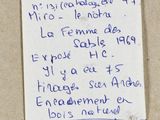 n° 131 (catalogue
Miro - le notra
La Femme des
Sable 1969
Exposé H.C.
Il y a eu 75
tirages sur Arches
Encadrement en
bois naturel